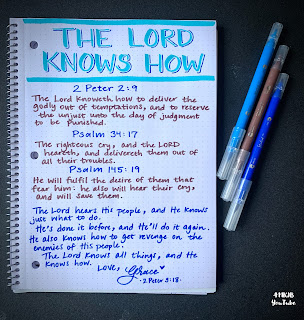 THE LORD
KNOWS HOW
2 Peter 2:9
The Lord knoweth how to deliver the
godly out of temptations, and to reserve
the unjust unto the day of judgment
to be punished.
Psalm 34:17
The righteous cry, and the LORD
heareth, and delivereth them out of
all their troubles.
Psalm 145:19
He will fulfil the desire of them that
fear him: he also will hear their cry,
and will save them.
The Lord hears His people, and He knows
just what to do.
He's done it before, and He'll do it again.
He also knows how to get revenge on the
enemies of His people.
The Lord knows all things, and He
knows how.
LOVE, Grace
2 Peter 3:18
YouTube